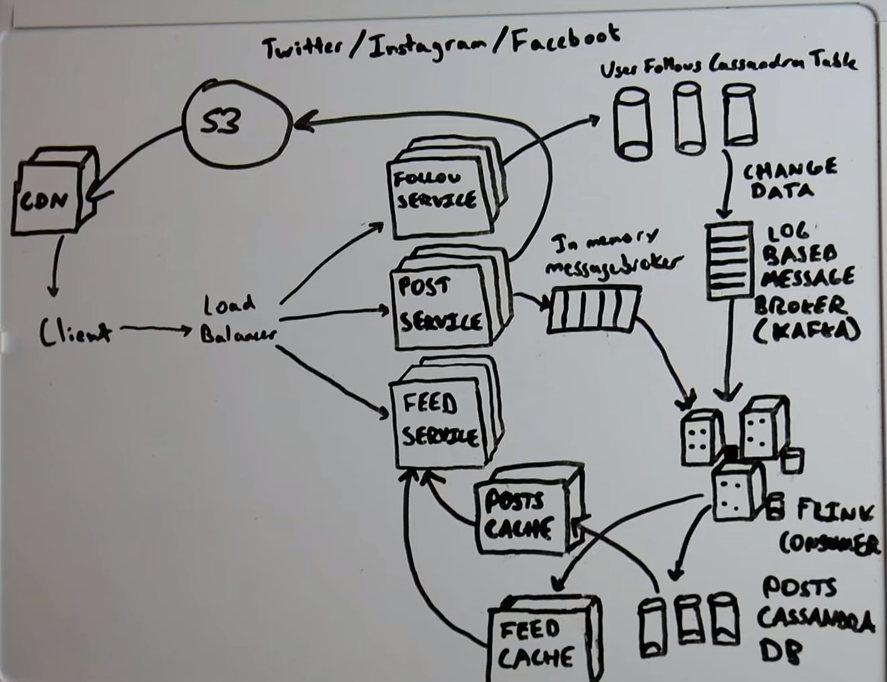 Twitter/Instagram/Facebook
User Follows Cassandra Table
S3
CDN
FOLLOW
SERVICE
CHANGE
DATA
In memory
messagebroker
LOG
BASED
MESSAGE
BROKER
(KAFKA)
POST
SERVICE
Load
Balancer
Client
FEED
SERVICE
POSTS
CACHE
FLINK
CONSUMER
POSTS
CASSANDRA
DB
FEED
CACHE